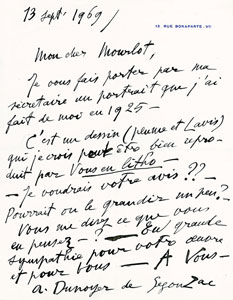 13 Sept 1969
13 RUE BONAPARTE. VI
Mon cher Mourlot,
Je vous fais porter par ma
secrétaire un portrait que j'ai
fait de moi en 1925 –
C'est un dessin (plume et Lavis)
qui je crois peut être bien repro-
duit par Vous en litho –
– Je voudrais votre avis ?? –
Pourrait on le grandir un peu ?
Vous me direz ce que vous
en pensez – ? En grande
sympathie pour votre œuvre
et pour Vous – A Vous –
A. Dunoyer de Segonzac